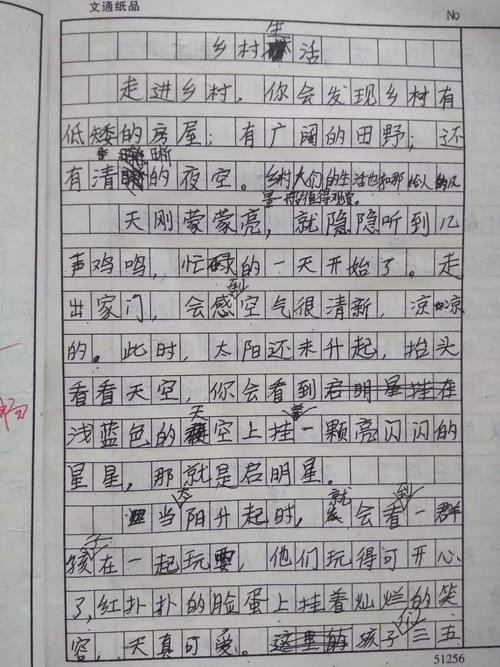 文通纸品
No
乡村生活
走进乡村，你会发现乡村有
低矮的房屋；有广阔的田野；还
有清晰的夜空。乡村人们的生活也和那怡人的风
景一样值得观赏。
天刚蒙蒙亮，就隐隐听到几
声鸡鸣，忙碌的一天开始了。走
出家门，会感到空气很清新，凉凉
的。此时，太阳还未升起，抬头
看看天空，你会看到启明星挂在
浅蓝色的天空上挂着一颗亮闪闪的
星星，那就是启明星。
当太阳升起时，就会看到一群
孩子在一起玩耍，他们玩得可开心
了，红扑扑的脸蛋上挂着灿烂的笑
容，天真可爱。这里的孩子三五
51256